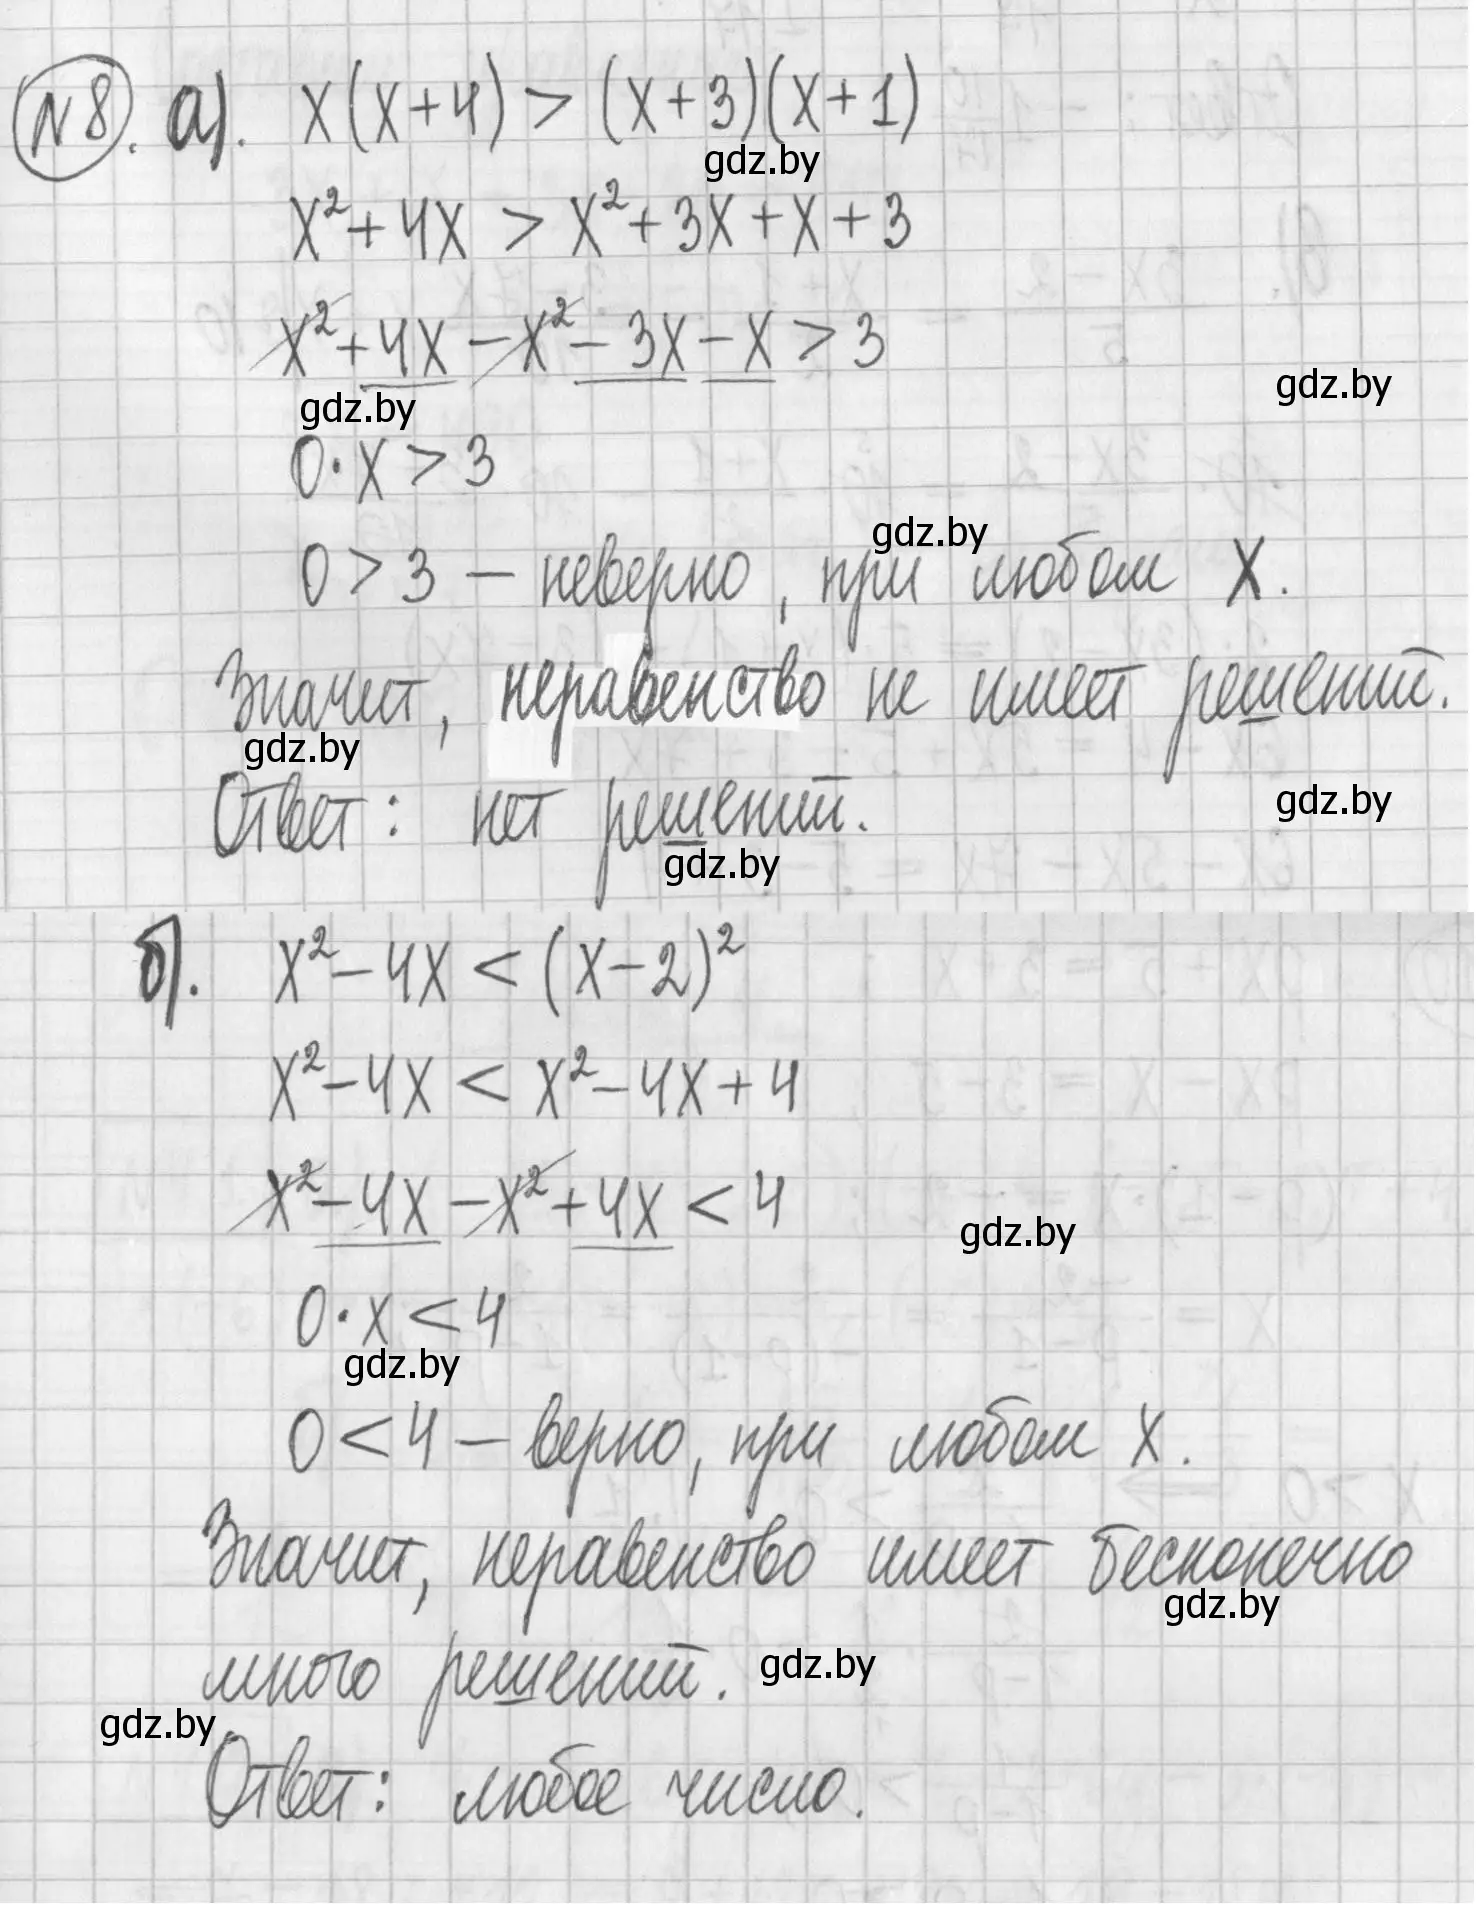 №8. а). x(x+4) > (x+3)(x+1)
gdz.by
x²+4x > x²+3x+x+3
x²+4x-x²-3x-x > 3
gdz.by
gdz.by
0·x > 3
gdz.by
0 > 3 - неверно, при любом x.
Значит, неравенство не имеет решений.
gdz.by
gdz.by
Ответ: нет решений.
gdz.by
б). x²-4x < (x-2)²
x²-4x < x²-4x+4
x²-4x-x²+4x < 4
gdz.by
0·x < 4
gdz.by
0 < 4 - верно, при любом x.
Значит, неравенство имеет бесконечно
gdz.by
много решений.
gdz.by
gdz.by
Ответ: любое число.